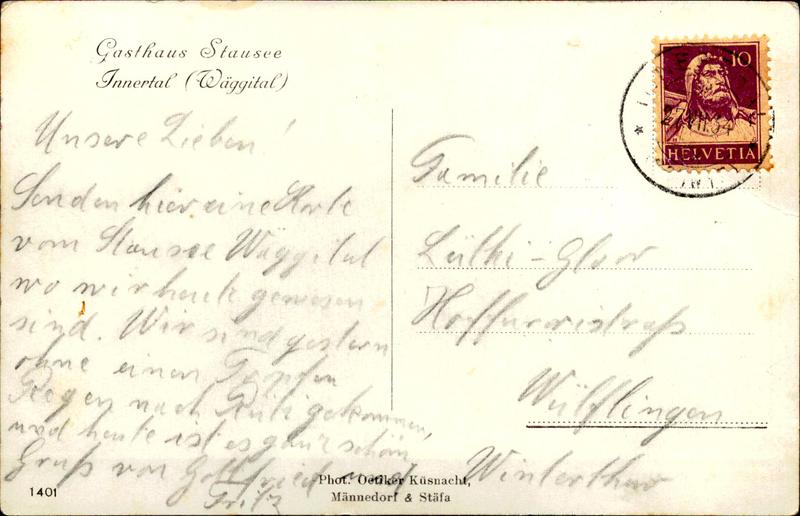 Gasthaus Stausee
Innertal (Wäggital)
Unsere Lieben!
Senden hier eine Karte
vom Stausee Wäggital
wo wir heute gewesen
sind. Wir sind gestern
ohne einen Tropfen
Regen nach Rüti gekommen,
und heute ist es ganz schön
Gruß von Gottfried und
Fritz
1401
Phot. Oetiker Küsnacht,
Männedorf & Stäfa
10
HELVETIA
Familie
Lüthi-Gloor
Wülflingen
Winterthur